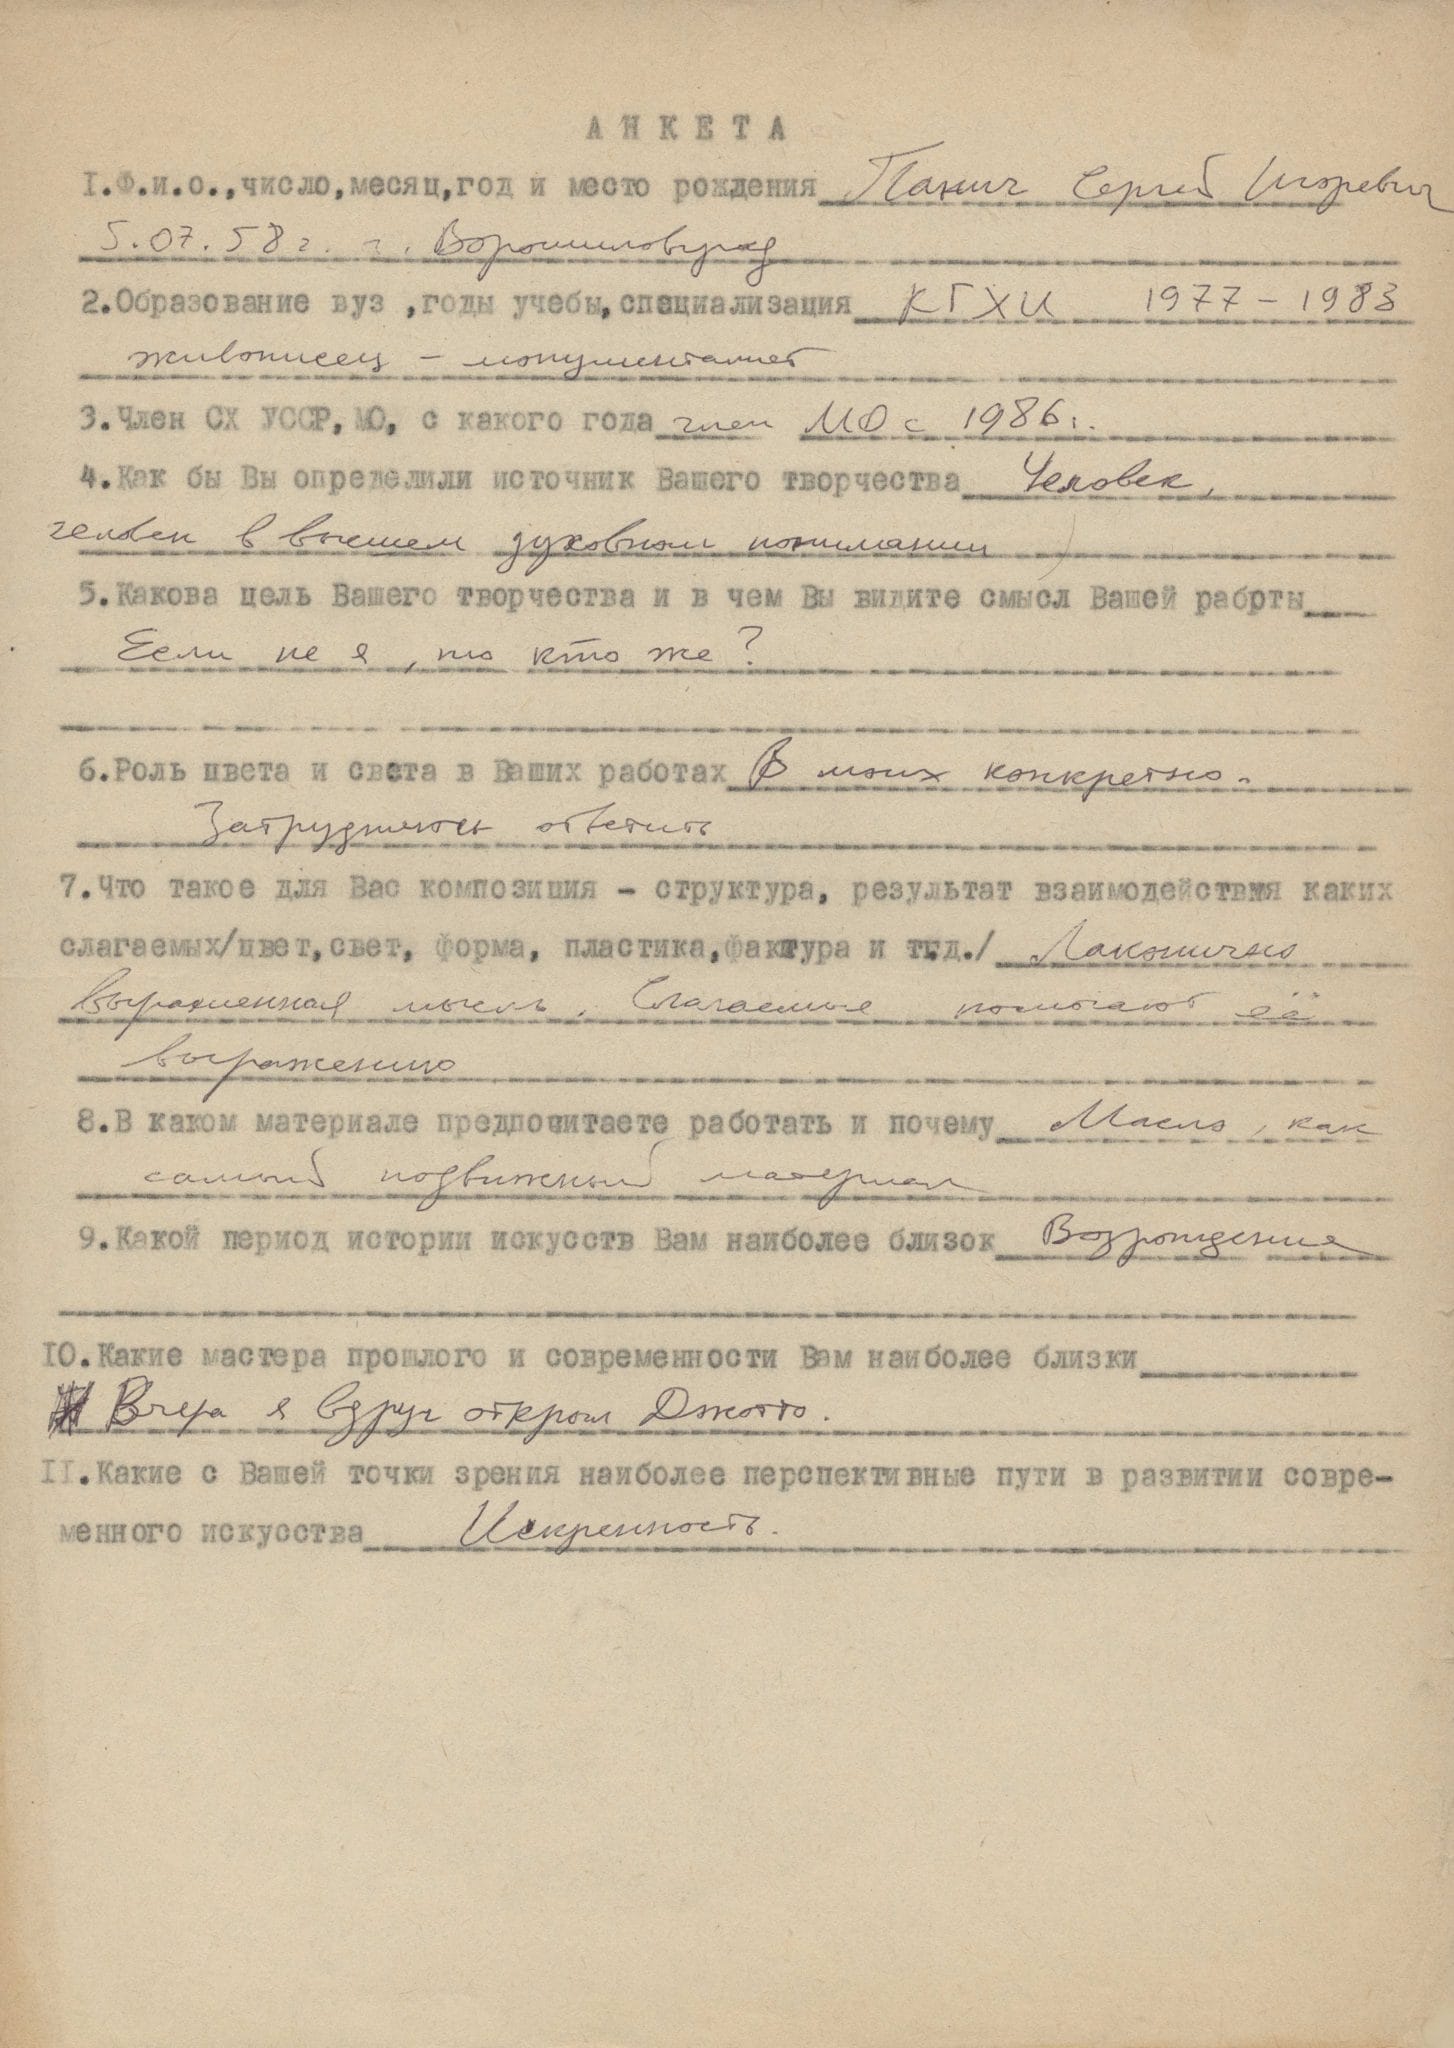 АНКЕТА
1.Ф.и.о.,число,месяц,год и место рождения Панич Сергей Игоревич
5.07.58г. г. Ворошиловград
2.Образование вуз ,годы учебы,специализация КГХИ 1977-1983
живописец - монументалист
3.Член СХ УССР, МО, с какого года член МО с 1986г.
4.Как бы Вы определили источник Вашего творчества Человек,
человек в высшем духовном понимании
5.Какова цель Вашего творчества и в чем Вы видите смысл Вашей рабрты
Если не я, то кто же?
6.Роль цвета и света в Ваших работах В моих конкретно-
Затрудняюсь ответить
7.Что такое для Вас композиция - структура, результат взаимодействия каких
слагаемых/цвет,свет, форма, пластика,фактура и т.д./ Лаконично
выраженная мысль. Слагаемые помогают её
выражению
8.В каком материале предпочитаете работать и почему Масло, как
самый подвижный материал
9.Какой период истории искусств Вам наиболее близок Возрождение
10.Какие мастера прошлого и современности Вам наиболее близки
Вчера я вдруг открыл Джотто.
11.Какие с Вашей точки зрения наиболее перспективные пути в развитии совре-
менного искусства Искренность.